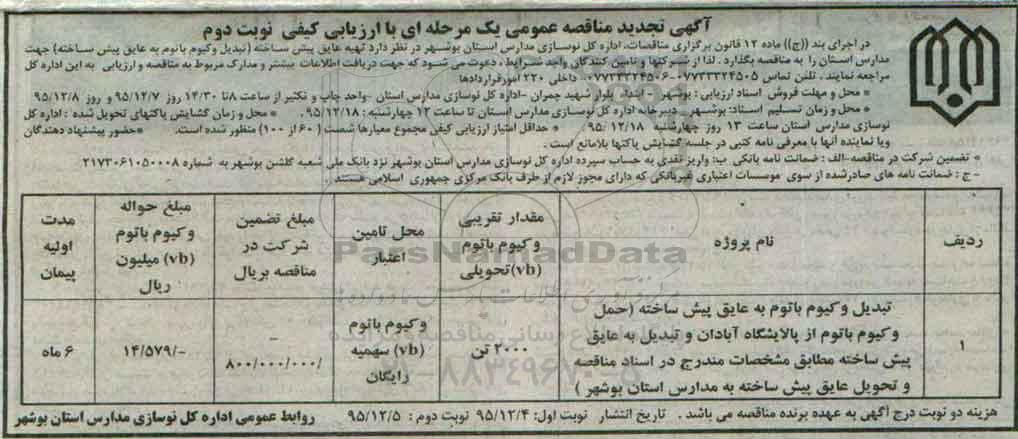 آگهی تجدید مناقصه عمومی یک مرحله ای با ارزیابی کیفی نوبت دوم
در اجرای بند ((ج)) ماده ۱۲ قانون برگزاری مناقصات، اداره کل نوسازی مدارس استان بوشهر در نظر دارد تهیه عایق پیش ساخته (تبدیل وکیوم باتوم به عایق پیش ساخته) جهت
مدارس استان را به مناقصه بگذارد . لذا از شرکتها و تامین کنندگان واجد شرایط ، دعوت می شود که جهت دریافت اطلاعات بیشتر و مدارک مربوط به مناقصه و ارزیابی به این اداره کل
مراجعه نمایند . تلفن تماس ۰۷۷۳۳۳۲۴۵۰۵-۰۷۷۳۳۳۲۴۵۰۶ داخلی ۲۲۰ امورقراردادها
* محل و مهلت فروش اسناد ارزیابی : بوشهر - ابتدای بلوار شهید چمران -اداره کل نوسازی مدارس استان -واحد چاپ و تکثیر از ساعت ۸ تا ۱۴/۳۰ روز ۹۵/۱۲/۷ و روز ۹۵/۱۲/۸
* محل و زمان تسلیم اسناد: بوشهر - دبیرخانه اداره کل نوسازی مدارس استان تا ساعت ۱۲ چهارشنبه ۹۵/۱۲/۱۸ . * محل و زمان گشایش پاکتهای تحویل شده : اداره کل
نوسازی مدارس استان ساعت ۱۳ روز چهارشنبه ۹۵/۱۲/۱۸ * حداقل امتیاز ارزیابی کیفی مجموع معیارها شصت (۶۰ از ۱۰۰) منظور شده است. *حضور پیشنهاد دهندگان
ویا نماینده آنها با معرفی نامه کتبی در جلسه گشایش پاکتها بلامانع است .
* تضمین شرکت در مناقصه-الف : ضمانت نامه بانکی ب: واریز نقدی به حساب سپرده اداره کل نوسازی مدارس استان بوشهر نزد بانک ملی شعبه گلشن بوشهر به شماره ۲۱۷۳۰۶۱۰۵۰۰۰۸
- ج : ضمانت نامه های صادرشده از سوی موسسات اعتباری غیربانکی که دارای مجوز لازم از طرف بانک مرکزی جمهوری اسلامی هستند .
ردیف
نام پروژه
مقدار تقریبی
وکیوم باتوم
(vb) تحویلی
محل تامین
اعتبار
مبلغ تضمین
شرکت در
مناقصه بریال
مبلغ حواله
وکیوم باتوم
(vb) میلیون
ریال
مدت
اولیه
پیمان
۱
تبدیل وکیوم باتوم به عایق پیش ساخته (حمل
وکیوم باتوم از پالایشگاه آبادان و تبدیل به عایق
پیش ساخته مطابق مشخصات مندرج در اسناد مناقصه
و تحویل عایق پیش ساخته به مدارس استان بوشهر )
۲۰۰۰ تن
وکیوم باتوم
(vb) سهمیه
رایگان
۸۰۰/۰۰۰/۰۰۰/-
۱۴/۵۷۹/-
۶ ماه
هزینه دو نوبت درج آگهی به عهده برنده مناقصه می باشد . تاریخ انتشار نوبت اول: ۹۵/۱۲/۴ نوبت دوم : ۹۵/۱۲/۵ روابط عمومی اداره کل نوسازی مدارس استان بوشهر
ParsNamadData
۰۲۱-۸۸۳۴۹۶۷۰